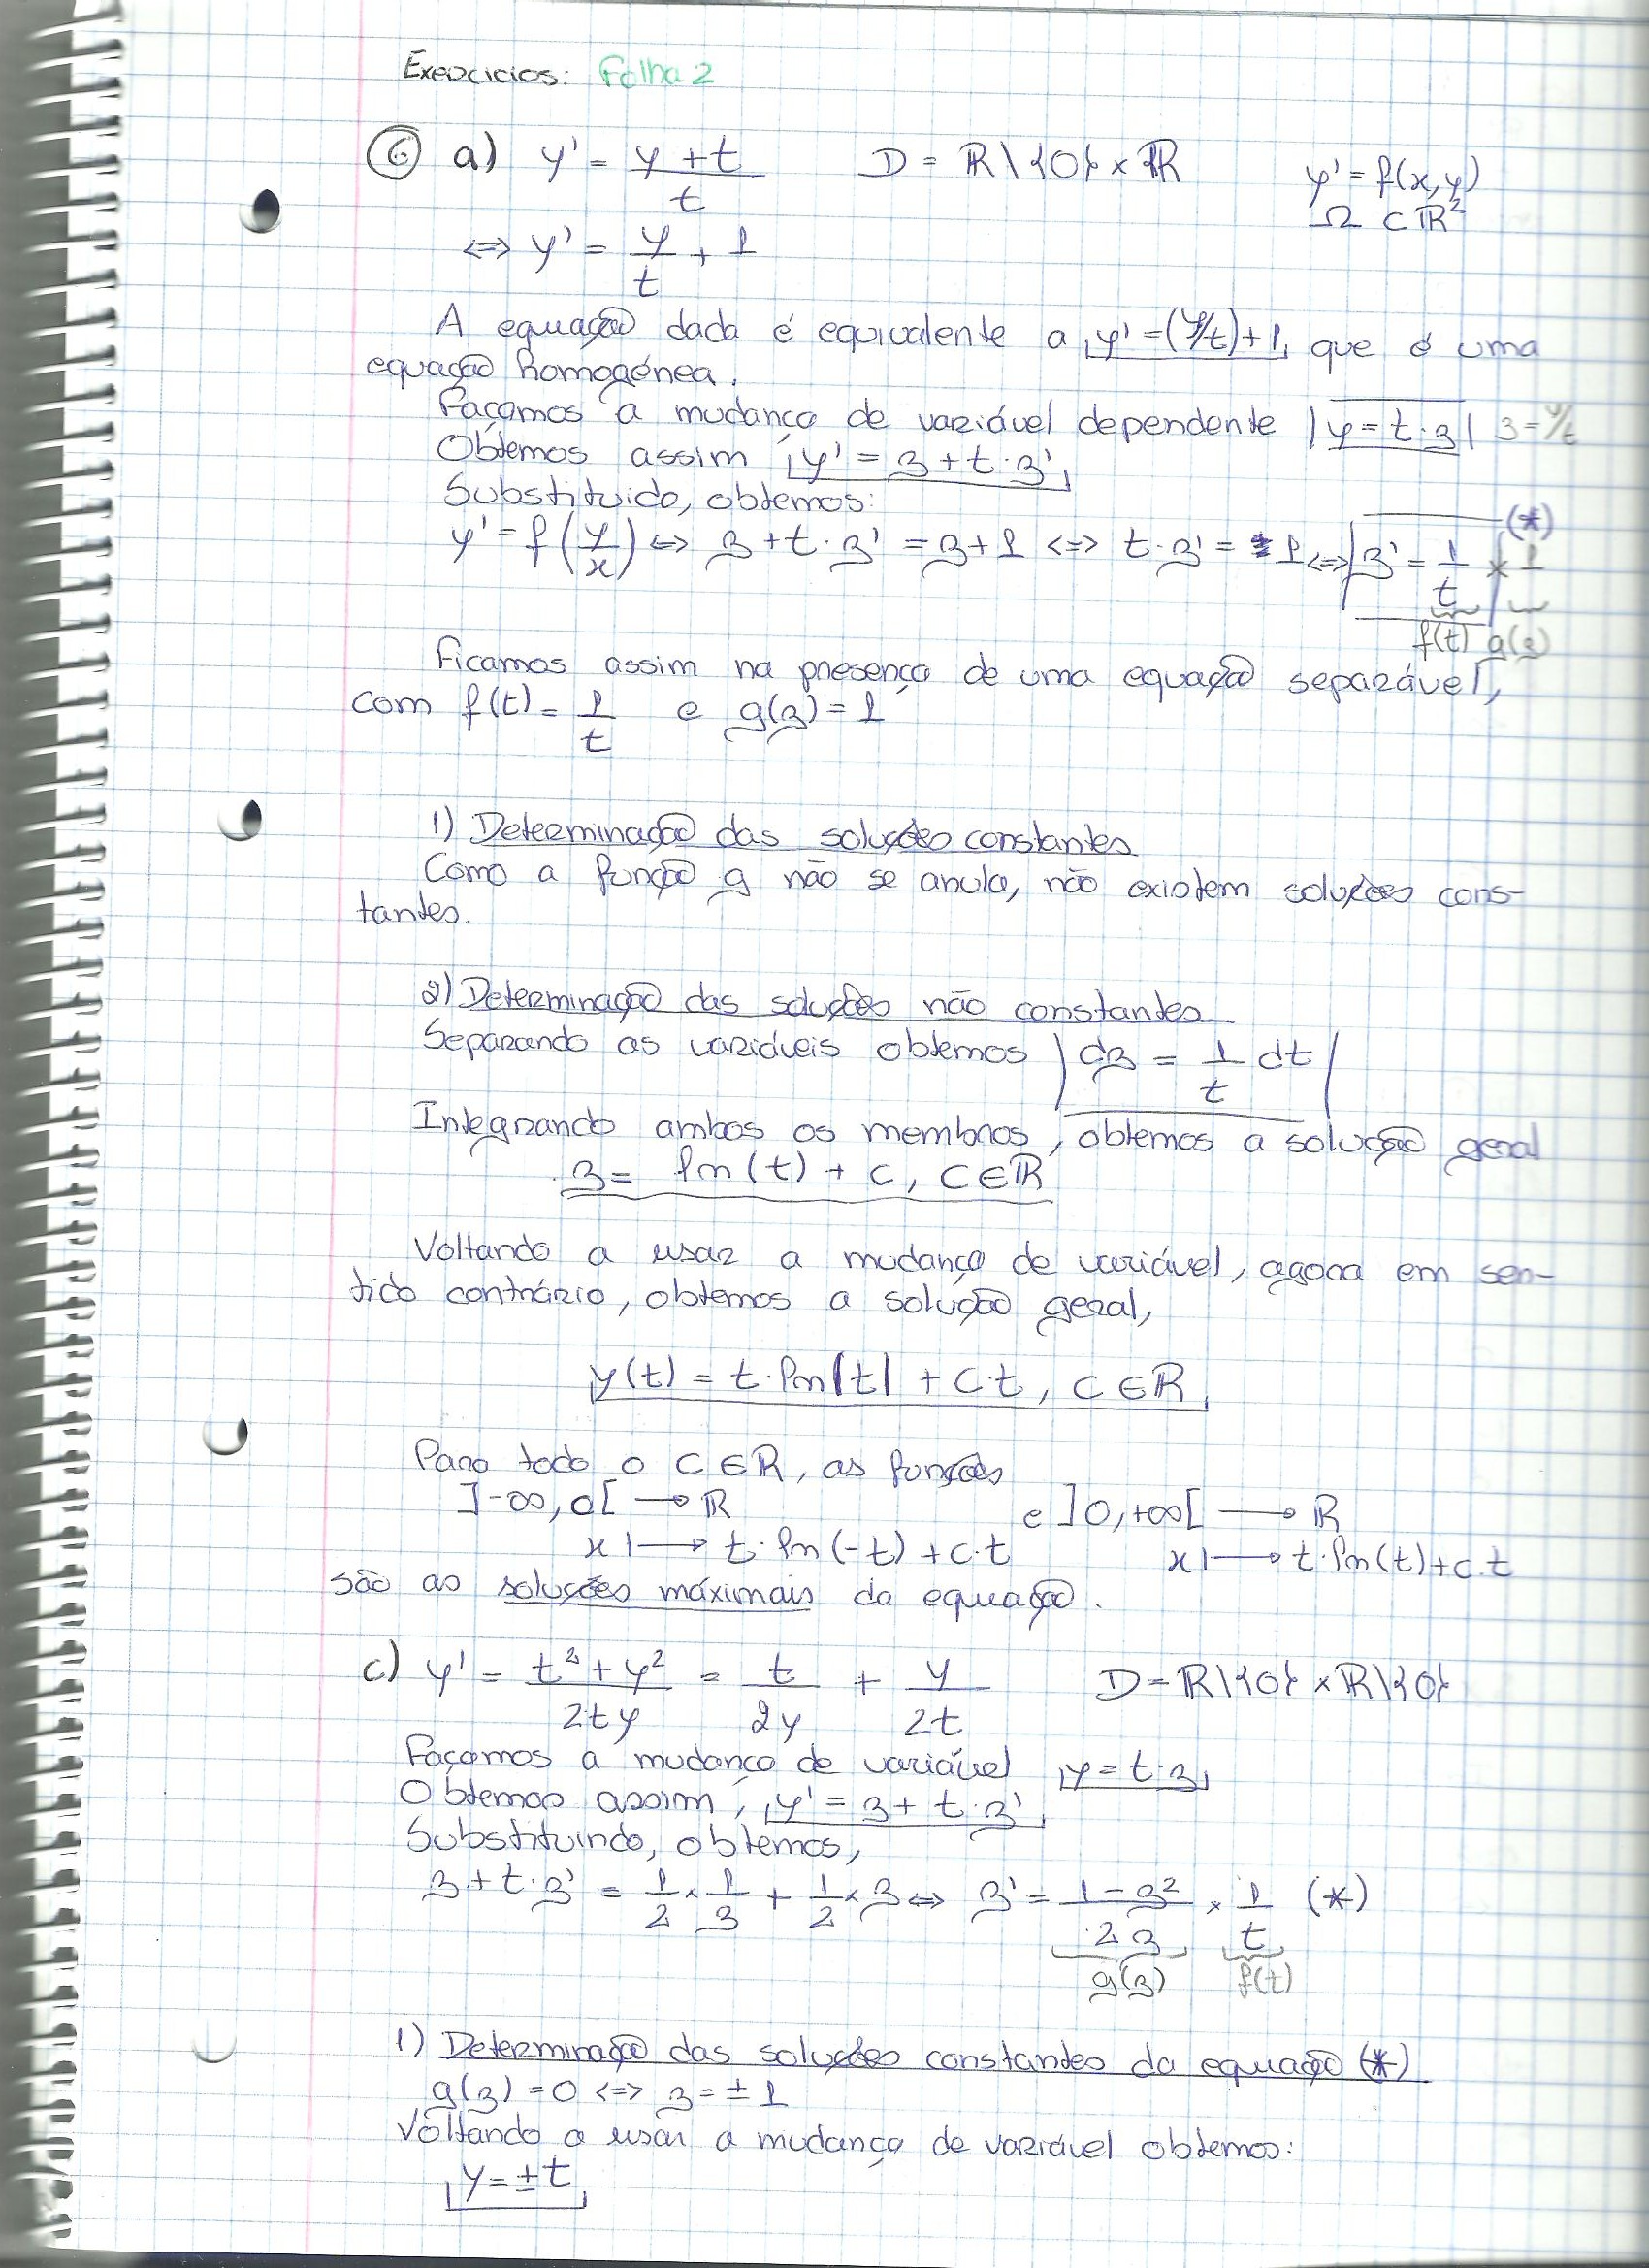 Exercicios: Folha 2
⑥ a) y' = (y + t)/t    D = ℝ\{0} × ℝ    y' = f(x,y)
Ω ⊂ ℝ²
<=> y' = y/t + 1
A equação dada é equivalente a y' = (y/t) + 1, que é uma
equação homogénea.
Façamos a mudança de variável dependente |y = t·z| z = y/t
Obtemos assim y' = z + t·z'
Substituido, obtemos:
y' = f(y/x) <=> z + t·z' = z + 1 <=> t·z' = 1 <=> z' = 1/t × 1 (*)
f(t) g(z)
Ficamos assim na presença de uma equação separável,
com f(t) = 1/t e g(z) = 1
1) Determinação das soluções constantes
Como a função g não se anula, não existem soluções cons-
tantes.
2) Determinação das soluções não constantes
Separando as variáveis obtemos |dz = 1/t dt|
Integrando ambos os membros, obtemos a solução geral
z = ln(t) + c, C ∈ ℝ
Voltando a usar a mudança de variável, agora em sen-
tido contrário, obtemos a solução geral,
y(t) = t·ln|t| + C·t, C ∈ ℝ
Para todo o C ∈ ℝ, as funções
]-∞, 0[ → ℝ e ]0, +∞[ → ℝ
x ↦ t·ln(-t) + c·t    x ↦ t·ln(t) + c.t
são as soluções máximais da equação.
c) y' = (t² + y²)/2ty = t/2y + y/2t    D = ℝ\{0} × ℝ\{0}
Façamos a mudança de variável y = t·z
Obtemos assim, y' = z + t·z'
Substituindo, obtemos,
z + t·z' = 1/2 × 1/z + 1/2 × z <=> z' = (1 - z²)/2z × 1/t (*)
g(z) f(t)
1) Determinação das soluções constantes da equação (*)
g(z) = 0 <=> z = ± 1
Voltando a usar a mudança de variável obtemos:
y = ± t